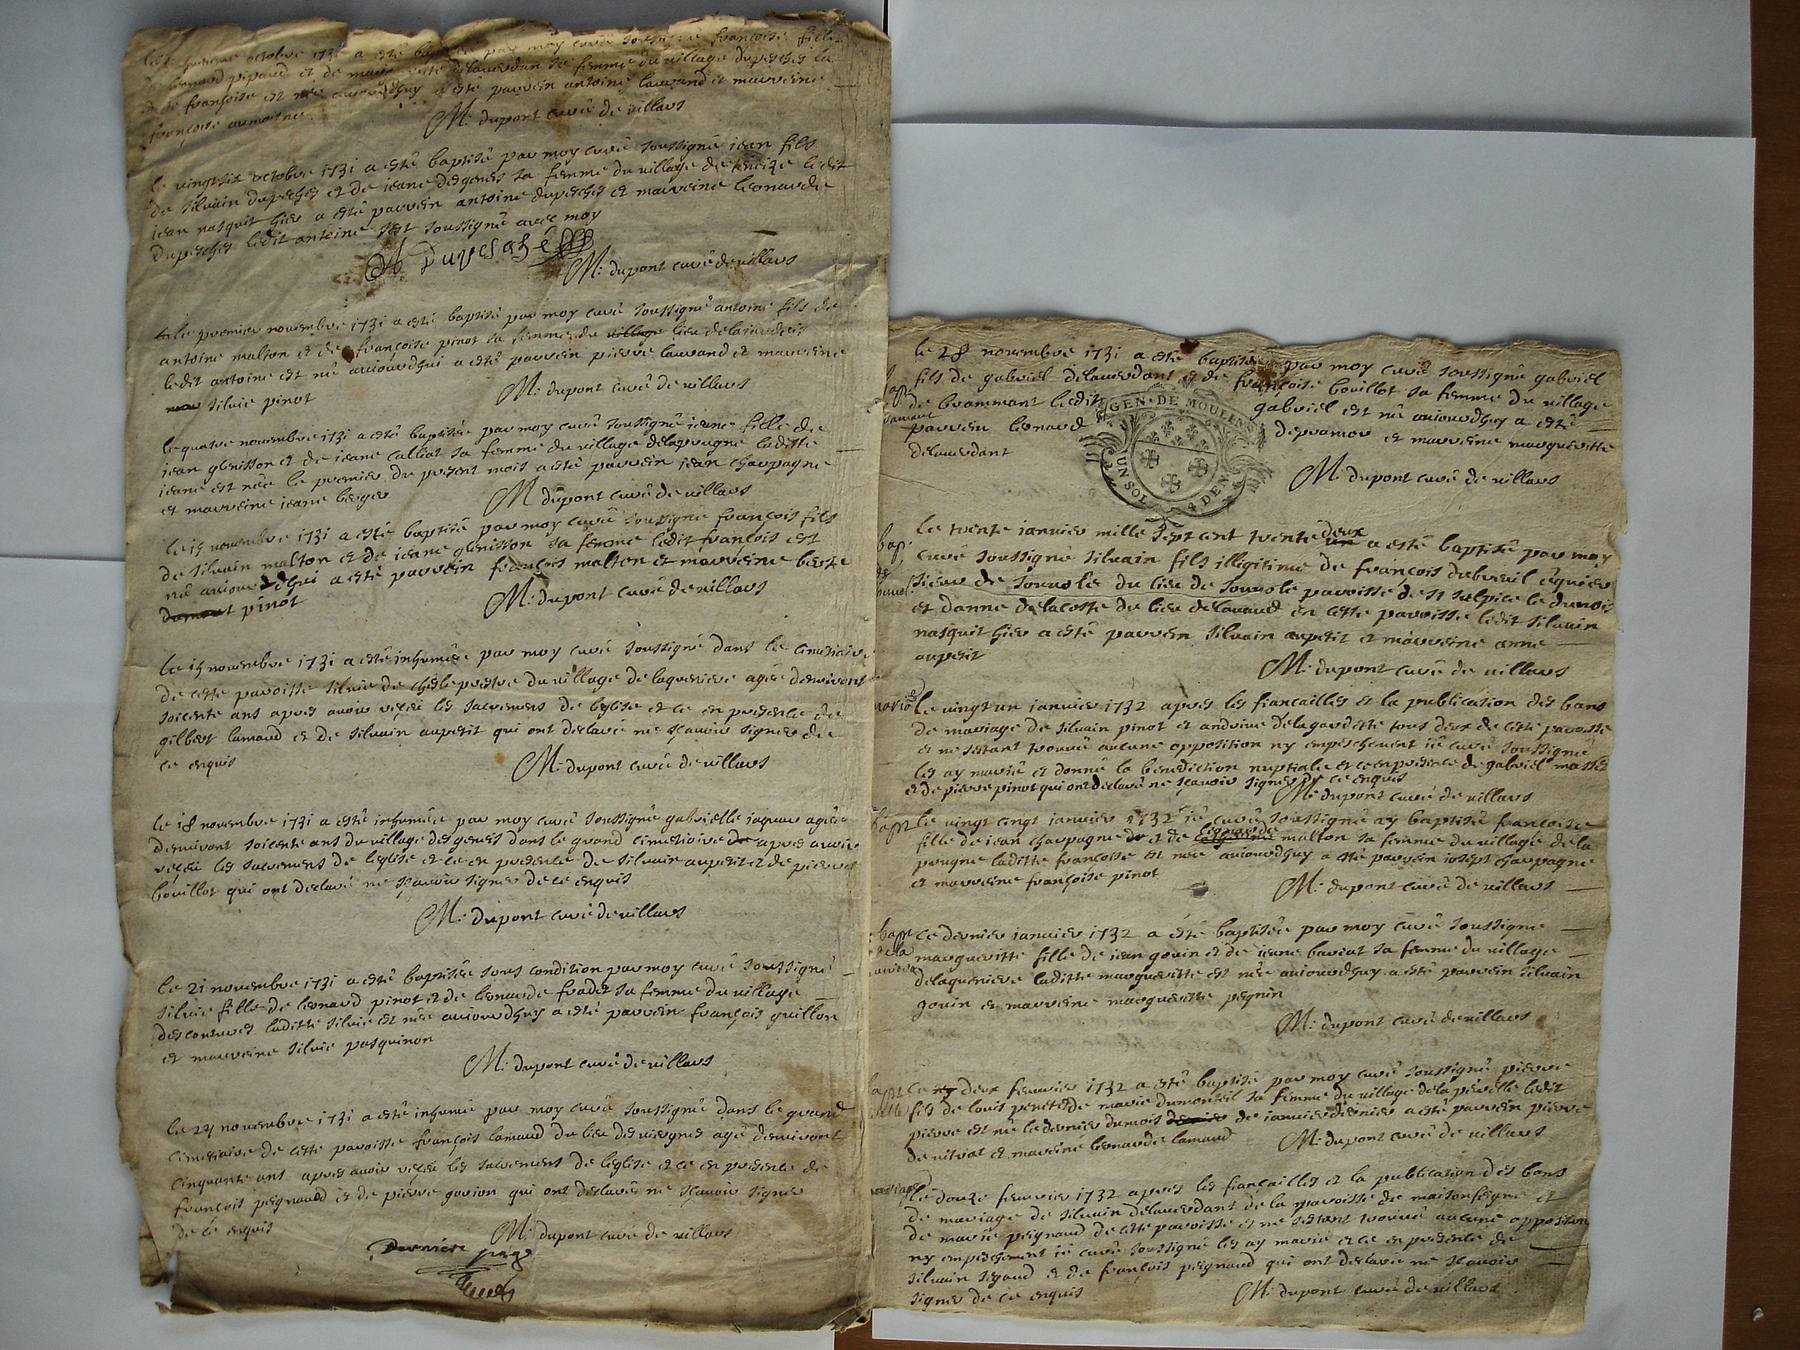 octobre 1731 a esté par moy curé soussigné françoise fille
de leonard pipaud et de sa femme du village dupeschés la
françoise est née aujourdhuy a esté parrein antoine lamand et marreine
françoise
M. dupont curé de villars
le vingtsix octobre 1731 a esté baptisé par moy curé soussigné jean fils
de silvain dupeschés et de jeane desgenes sa femme du village de ledit
jean nasquit hier a esté parrein antoine dupeschés et marreine leonarde
dupeschés ledit antoine sest soussigné avec moy
A Dupesché
M. dupont curé de villars
le premier novembre 1731 a esté baptisé par moy curé soussigné antoine fils de
antoine malton et de françoise pinot sa femme du village lieu
ledit antoine est né aujourdhui a esté parrein pierre lamand et marreine
silvie pinot
M. dupont curé de villars
le quatre novembre 1731 a esté baptisée par moy curé soussigné jeane fille de
jean glenisson et de jeane calliat sa femme du village delapougne laditte
jeane est née le premier du present mois a esté parrein jean charpagne
et marreine jeane berger
M dupont curé de villars
le 15 novembre 1731 a esté baptisé par moy curé soussigné françois fils
de silvain malton et de jeane glenisson sa femme ledit françois est
né aujourdhui a esté parrein françois malton et marreine
pinot
M. dupont curé de villars
le 15 novembre 1731 a esté inhumée par moy curé soussigné dans le cimetiere
de cette paroisse silvie du village de laqueriere agée denviront
soicente ans apres avoir reçeu les sacremens de leglise et ce en presence de
gilbert lamaud et de silvain aupetit qui ont declaré ne sçavoir signer de
ce enquis
M. dupont curé de villars
le 18 novembre 1731 a esté inhumée par moy curé soussigné gabrielle jaquar agée
denviront soicente ans du village desgenest dans le grand cimetiere de apres avoir
reçeu les sacremens de leglise et ce en presence de silvain aupetit et de pierre
bouillot qui ont declaré ne sçavoir signer de ce enquis
M. dupont curé de villars
le 21 novembre 1731 a esté baptisée sous condition par moy curé soussigné
silvie fille de leonard pinot et de leonarde fradet sa femme du village
descoutures laditte silvie est née aujourdhuy a esté parrein françois guillon
et marreine silvie pasquinon
M. dupont curé de villars
le 24 novembre 1731 a esté inhumé par moy curé soussigné dans le grand
cimetiere de cette paroisse françois lamaud du lieu agé denviront
cinquante ans apres avoir reçeu les sacremens de leglise et ce en presence de
françois peignaud et de pierre govion qui ont declaré ne sçavoir signer
de ce enquis
M. dupont curé de villars
Dernière page
le 28 novembre 1731 a esté baptisée par moy curé soussigné gabriel
fils de gabriel delaverdant et de françoise bouillot sa femme du village
de brammant ledit gabriel est né aujourdhuy a esté
parrein leonard depramor et marreine margueritte
delaverdant
GEN · DE MOULINS
UN SOL 4 DEN
M. dupont curé de villars
bap.
le trente janvier mille sept cent trente deux a esté baptisé par moy
curé soussigné silvain fils illégitime de françois dubreuil équier
sieur de souvolé du lieu de souvole paroisse de st sulpice le dunois
et danne delacoste du lieu delavaud en cette paroisse ledit silvain
nasquit hier a esté parrein silvain aupetit et marreine anne
aupetit
M. dupont curé de villars
le vingt un janvier 1732 apres les fiancailles et la publication des bans
de mariage de silvain pinot et andrive delagardette tous deux de cette paroisse
et ne sestant trouvé aucune opposition ny empeschement je curé soussigné
les ay marié et donné la benediction nuptiale et ce en presence de gabriel
et de pierre pinot qui ont declaré ne sçavoir signer de ce enquis
M. dupont curé de villars
bapt
le vingt cinqt janvier 1732 je curé soussigné ay baptisé françoise
fille de jean charpagne et de leonarde malton sa femme du village de la
pougne laditte françoise est née aujourdhuy a esté parrein joseph charpagne
et marreine françoise pinot
M. dupont curé de villars
bapt
ce dernier janvier 1732 a été baptisée par moy curé soussigné
margueritte fille de jean gouin et de jeane baviat sa femme du village
delaqueriere laditte margueritte est née aujourdhuy a esté parrein silvain
gouin et marreine margueritte pegnin
M. dupont curé de villars
bapt
ce deux fevrier 1732 a esté baptisé par moy curé soussigné pierre
fils de louis penet et de marie dumonteil sa femme du village ledit
pierre est né le dernier du mois de janvier dernier a esté parrein pierre
et marreine leonarde lamaud
M. dupont curé de villars
mariage
le douze fevrier 1732 apres les fiancailles et la publication des bans
de mariage de silvain delaverdant de la paroisse de maisonfeigne et
de marie peignaud de cette paroisse et ne sestant trouvé aucune opposition
ny empeschement je curé soussigné les ay marié et ce en presence de
silvain et de françois peignaud qui ont declaré ne sçavoir
signer de ce enquis
M. dupont curé de villars